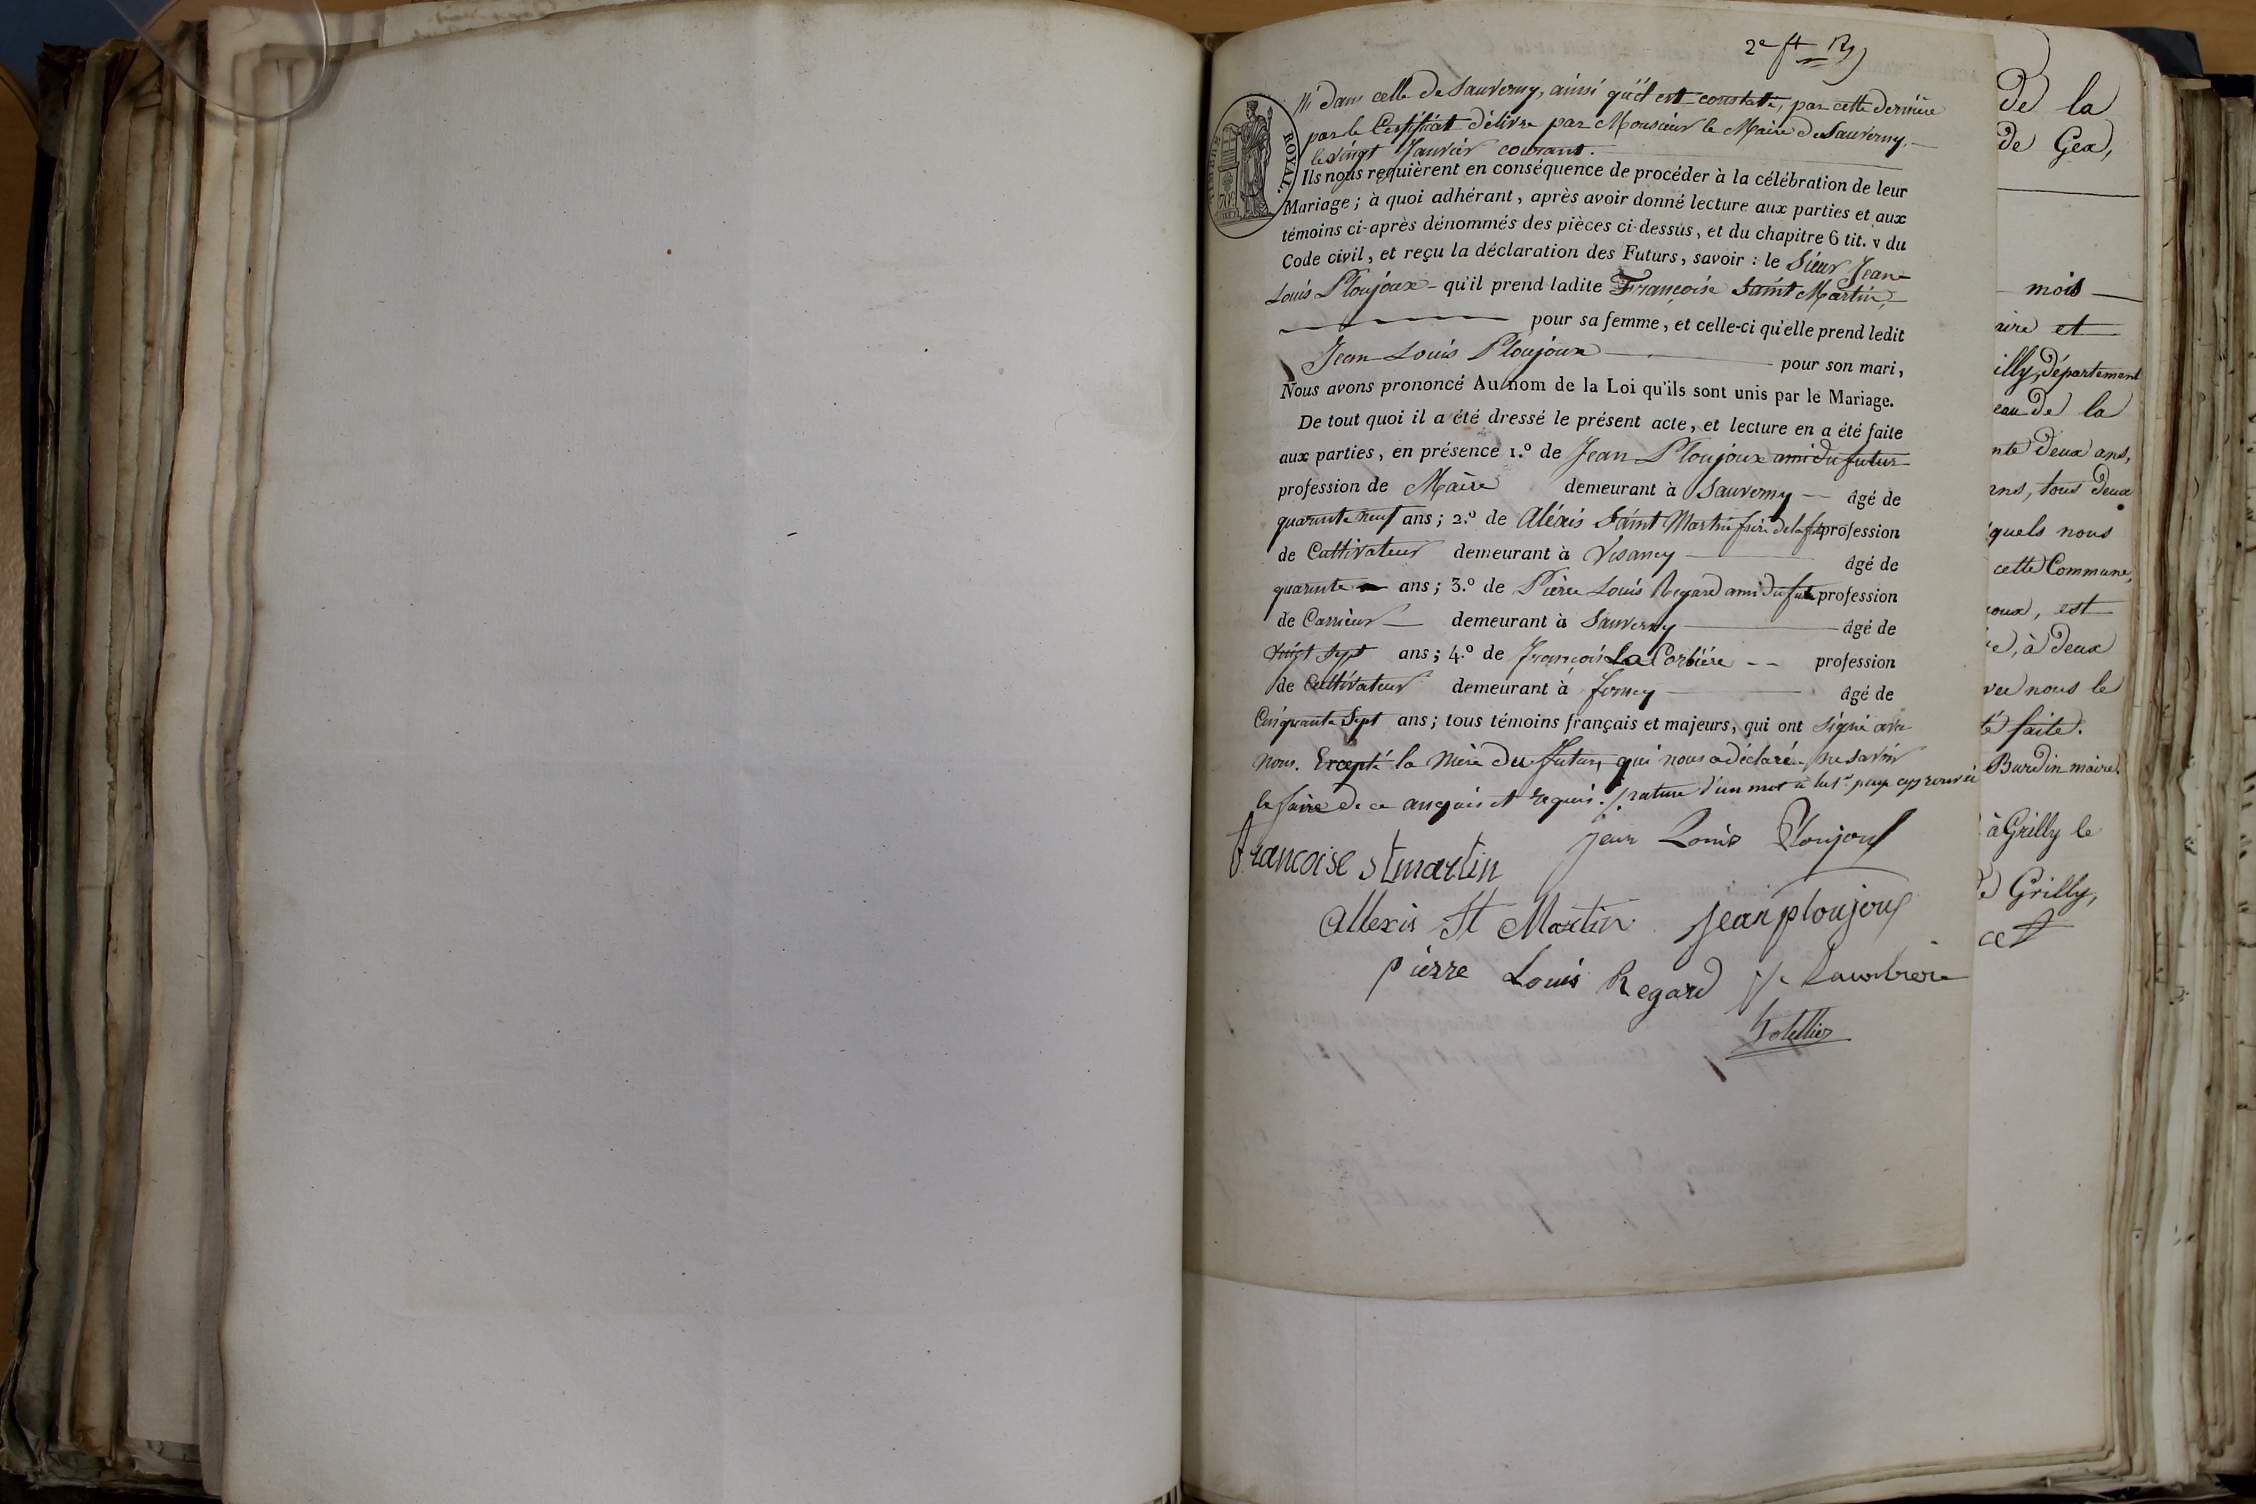 2e ft
ni dans celle de Sauverny, ainsi qu'il est constaté, par cette dernière
par le Certificat délivré par Monsieur le Maire de Sauverny,
le vingt Janvier courant.
TIMBRE ROYAL.
70c
Ils nous requièrent en conséquence de procéder à la célébration de leur
Mariage; à quoi adhérant, après avoir donné lecture aux parties et aux
témoins ci-après dénommés des pièces ci-dessus, et du chapitre 6 tit. v du
Code civil, et reçu la déclaration des Futurs, savoir : le Sieur Jean-
Louis Ploujoux - qu'il prend ladite Françoise Saint Martin,
pour sa femme, et celle-ci qu'elle prend ledit
Jean Louis Ploujoux pour son mari,
Nous avons prononcé Au nom de la Loi qu'ils sont unis par le Mariage.
De tout quoi il a été dressé le présent acte, et lecture en a été faite
aux parties, en présence 1.º de Jean Ploujoux ami du futur
profession de Maire demeurant à Sauverny âgé de
quarante neuf ans; 2.º de Aléxis Saint Martin frère de la profession
de Cultivateur demeurant à Vesancy âgé de
quarante ans; 3.º de Pièrre Louis Regard ami du futur profession
de Carrieur demeurant à Sauverny âgé de
vingt Sept ans; 4.º de François La Corbière -- profession
de Cultivateur demeurant à forney âgé de
Cinquante Sept ans; tous témoins français et majeurs, qui ont signé avec
nous. Excepté la Mère du futur, qui nous a déclaré ne savoir
le faire de ce enquis et requis. rature d'un mot approuvée
francoise stmartin
Jean Louis Ploujoux
allexis St Martin
jean ploujoux
pierre Louis Regard
De la
De Gex,
mois
aire et
illy, département
eau De la
nte Deux ans,
ans, tous Deux
quels nous
cette Commune,
joux, est
à Deux
nous le
té faite.
Burdin maire.
à Grilly le
De Grilly,